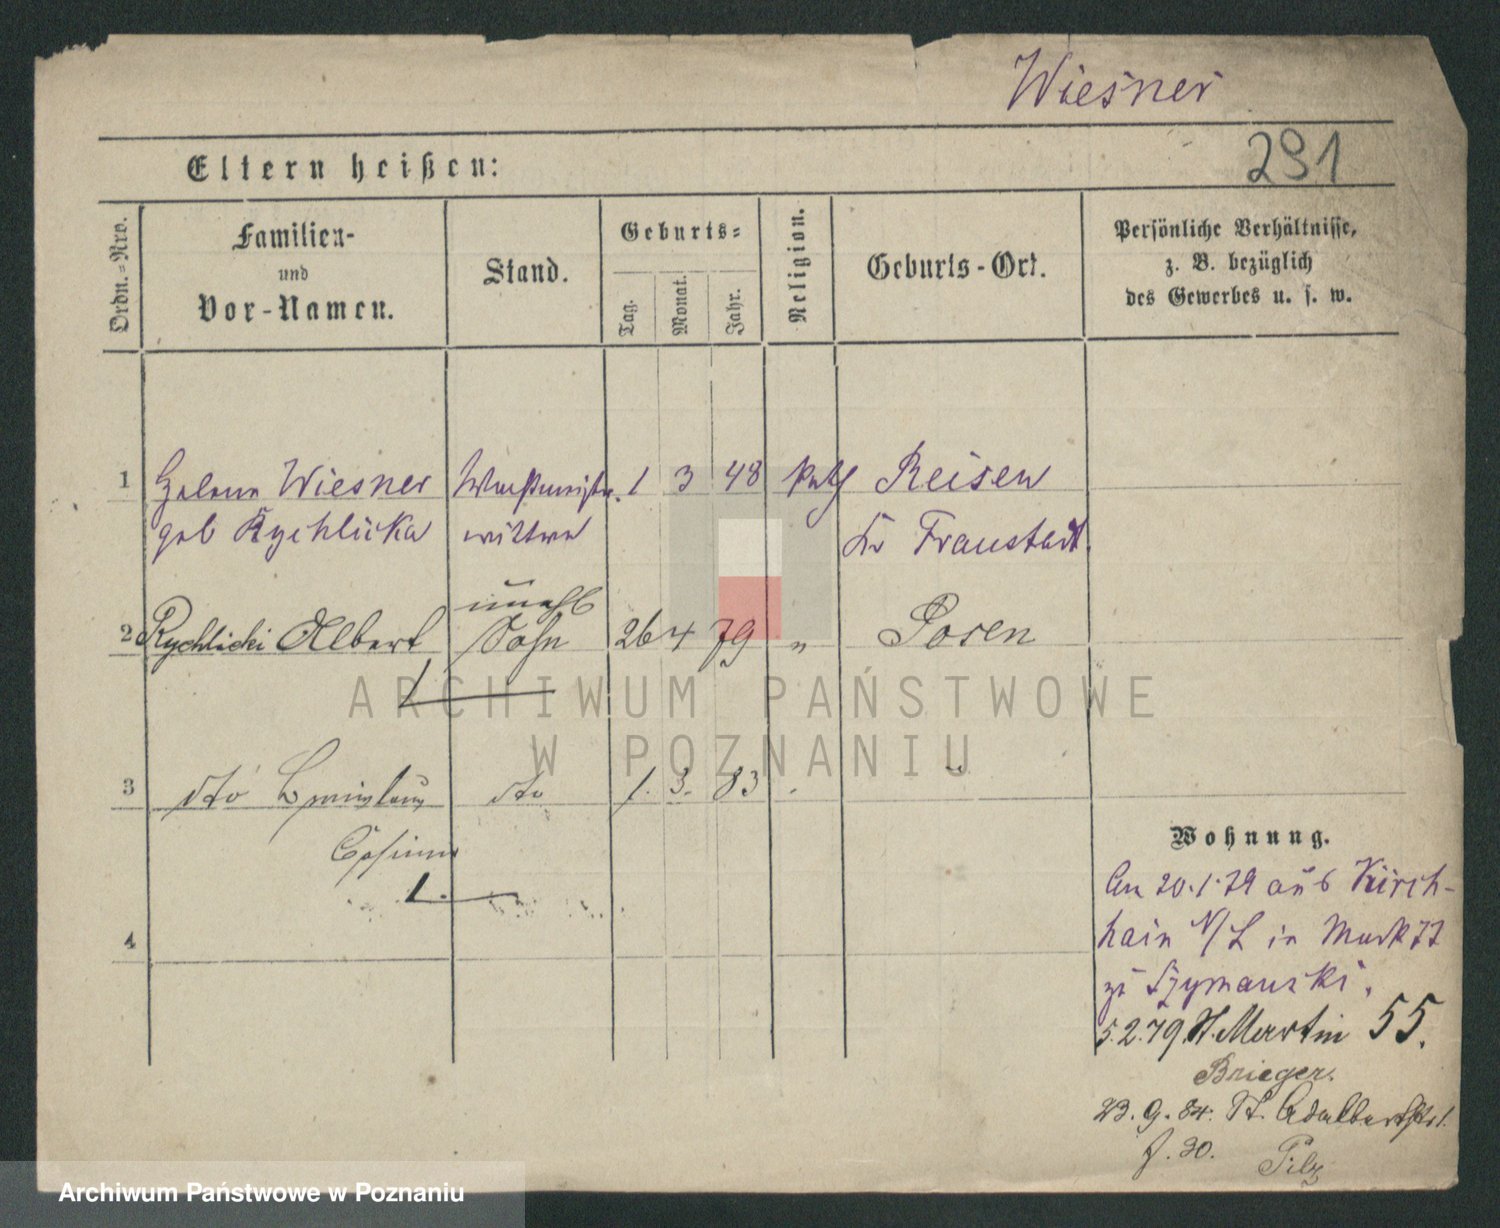 Wiesner
291
Eltern heißen:
Ordn.=Nro.
Familien-
und
Vor-Namen.
Stand.
Geburts=
Tag.
Monat.
Jahr.
Religion.
Geburts-Ort.
Persönliche Verhältnisse,
z. B. bezüglich
des Gewerbes u. s. w.
1 Helene Wiesner 1 3 48 kath Reisen
geb Rychlicka wittwe Kr Fraustadt.
unehl
2 Rychlicki Albert Sohn 26 4 79 " Posen
3 dto dto 1. 3. 83
4
Wohnung.
An 20.1.79 aus Kirch-
hain N/L in Markt 77
zu Szymanski.
5.2.79 St. Martin 55.
Brieger.
23.9.84. St. Adalbertstr 1.
f. 30. Pilz
ARCHIWUM PAŃSTWOWE
W POZNANIU
Archiwum Państwowe w Poznaniu